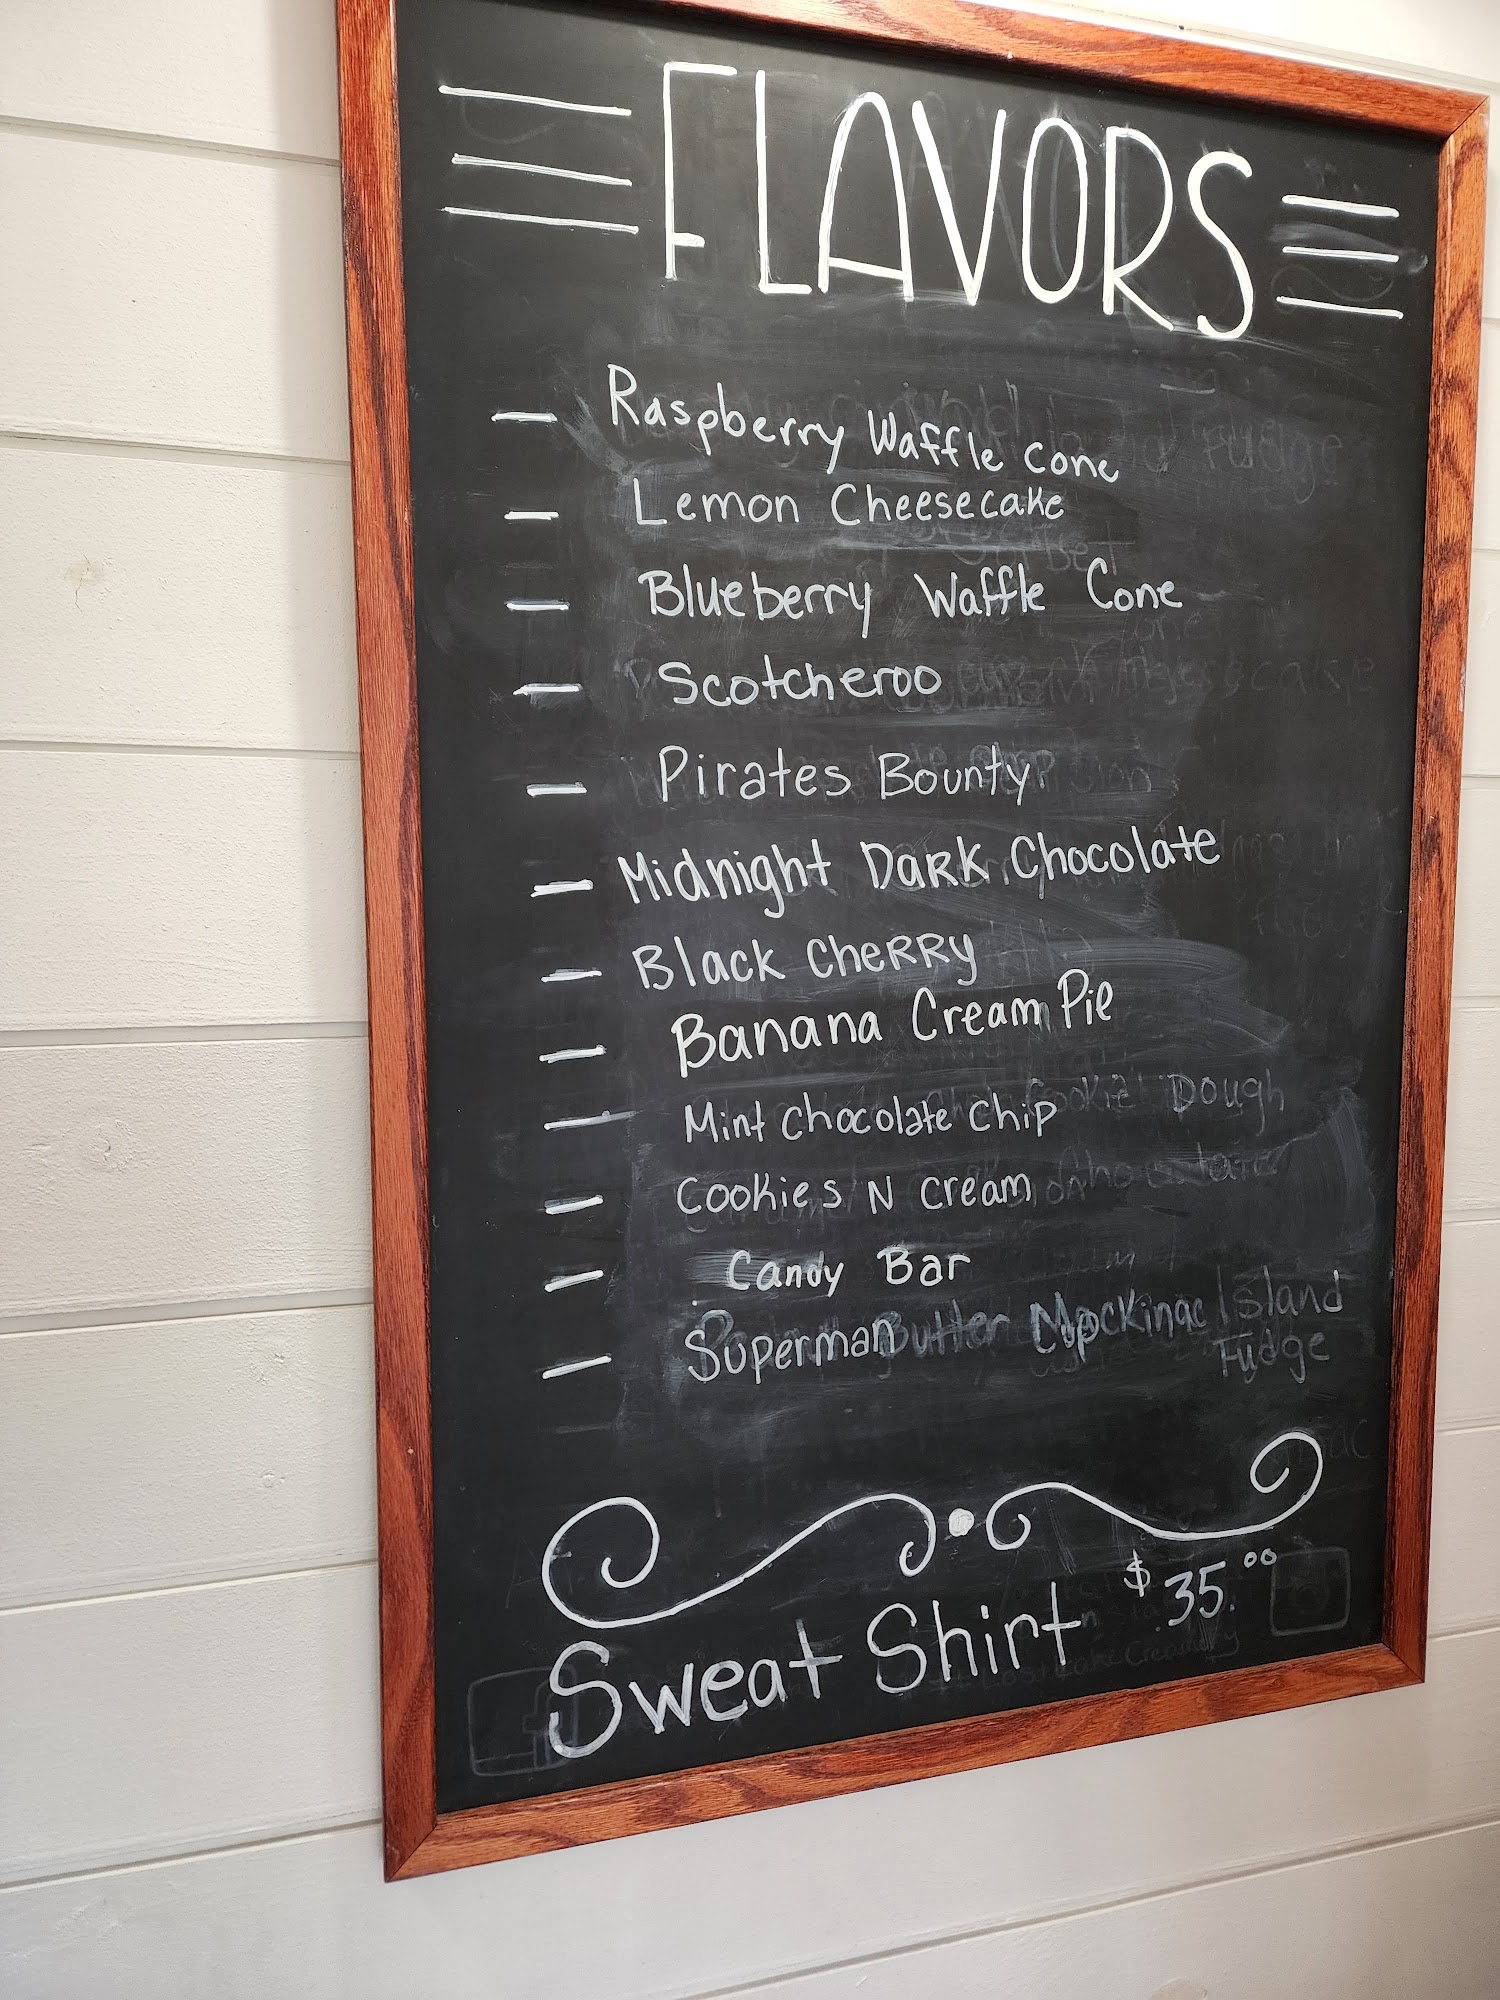 FLAVORS
Raspberry Waffle Cone
Lemon Cheesecake
Blueberry Waffle Cone
Scotcheroo
Pirates Bounty
Midnight Dark Chocolate
Black Cherry
Banana Cream Pie
Mint Chocolate Chip
Cookies N Cream
Candy Bar
Superman Butter Mackinac Island
Fudge
Sweat Shirt $35.00